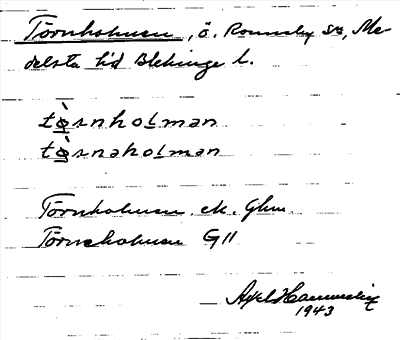 Törnholmen, ö. Ronneby sn, Me-
delsta hd Blekinge l.
tö̀rnholmen
tö̀rnəholmen
Törnholmen ek. Ghm.
Törneholmen G11
Axel
1943